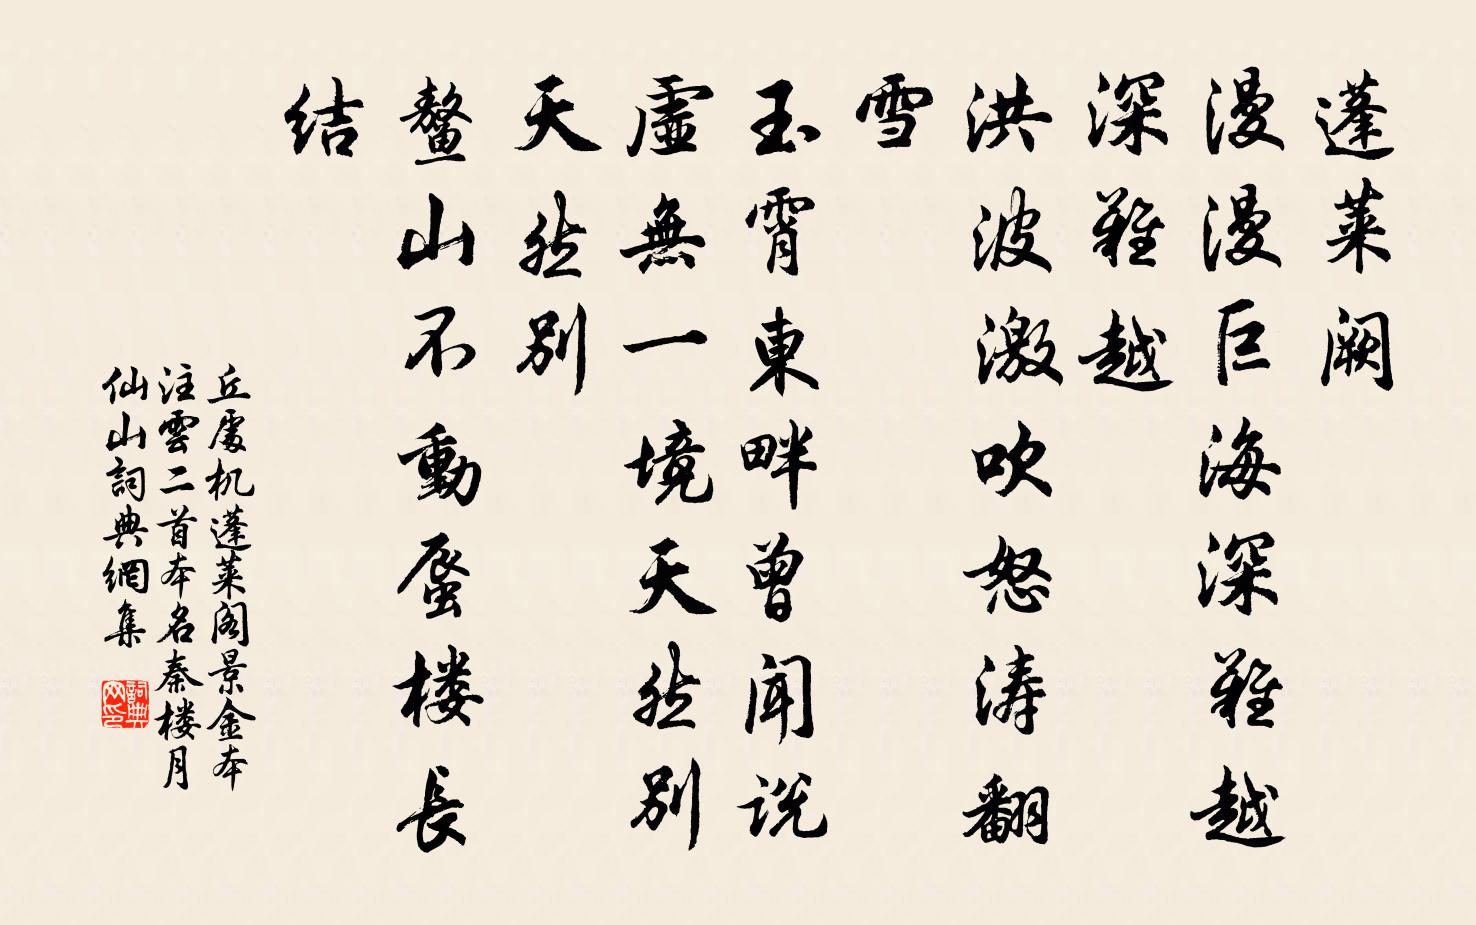 蓬莱阙
漫漫巨海深難越
深難越
洪波激吹怒涛翻
雪
玉霄東畔曾闻说
虚無一境天然别
天然别
鳌山不動蜃楼長
结
丘處机蓬莱阁景金本
注雲二首本名秦楼月
仙山詞典網集
詞典
网印